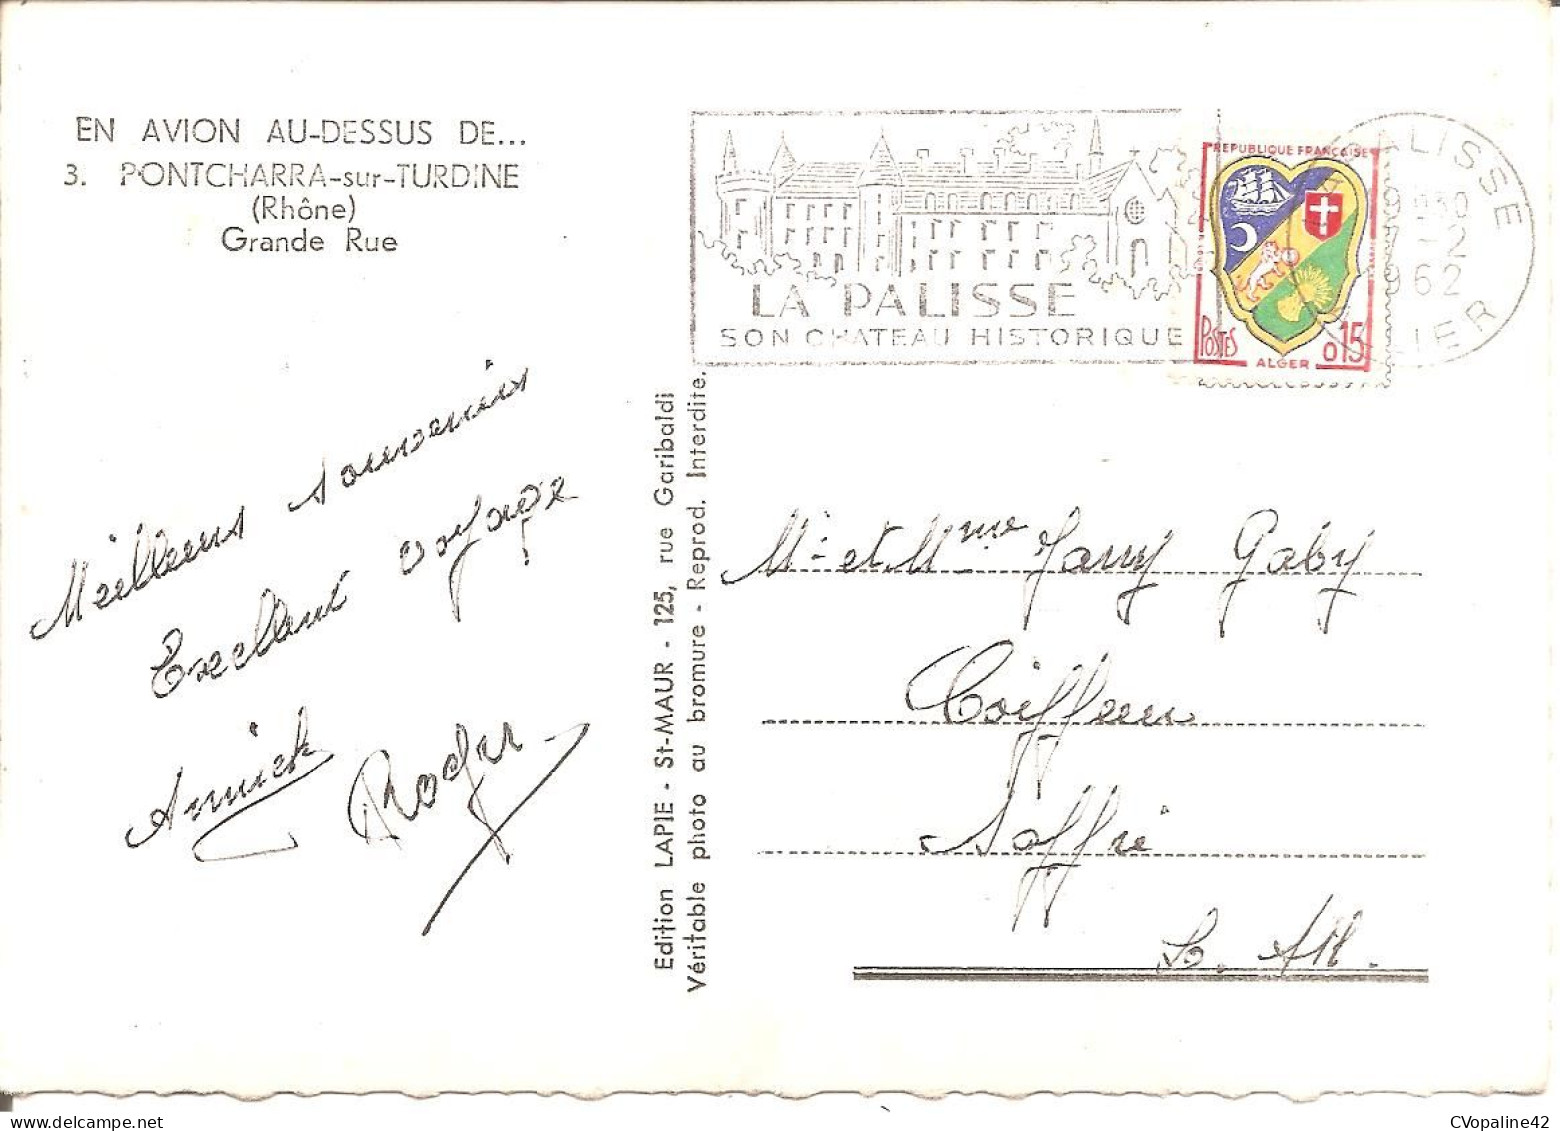 EN AVION AU-DESSUS DE...
3. PONTCHARRA-sur-TURDINE
(Rhône)
Grande Rue
LA PALISSE
SON CHATEAU HISTORIQUE
REPUBLIQUE FRANÇAISE
POSTES
0,15
ALGER
LAPALISSE
930
-2
1962
ALLIER
Meilleurs souvenirs
Excellent voyage !
Annick Roger
Edition LAPIE - St-MAUR - 125, rue Garibaldi
Véritable photo au bromure - Reprod. Interdite.
Mr et Mme Jarry Gaby
Coiffeur
Saffré
L. Atl.
CVopaline42